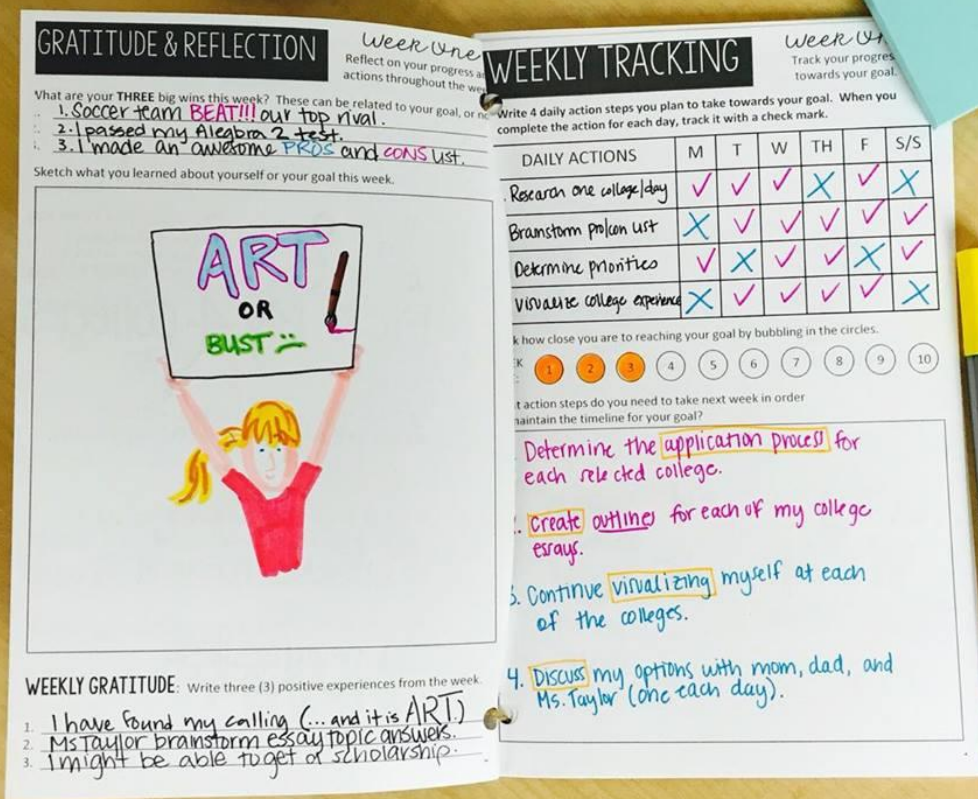 GRATITUDE & REFLECTION
Week One
Reflect on your progress
actions throughout the
What are your THREE big wins this week? These can be related to your goal, or
1. Soccer team BEAT!!! our top rival.
2. I passed my Alegbra 2 test.
3. I made an awesome PROS and CONS list.
Sketch what you learned about yourself or your goal this week.
ART
OR
BUST
WEEKLY GRATITUDE: Write three (3) positive experiences from the week.
1. I have found my calling (... and it is ART.)
2. Ms Taylor brainstorm essay topic answers.
3. I might be able to get a scholarship.
WEEKLY TRACKING
Week
Track your
towards your goal.
Write 4 daily action steps you plan to take towards your goal. When you
complete the action for each day, track it with a check mark.
DAILY ACTIONS M T W TH F S/S
Research one college/day ✓ ✓ ✓ X ✓ X
Brainstorm pro/con list X ✓ ✓ ✓ ✓ ✓
Determine priorities ✓ X ✓ ✓ X ✓
Visualize college experience X ✓ ✓ ✓ ✓ X
how close you are to reaching your goal by bubbling in the circles.
1 2 3 4 5 6 7 8 9 10
action steps do you need to take next week in order
timeline for your goal?
Determine the application process for
each selected college.
create outlines for each of my college
essays.
3. Continue visualizing myself at each
of the colleges.
4. Discuss my options with mom, dad, and
Ms. Taylor (one each day).